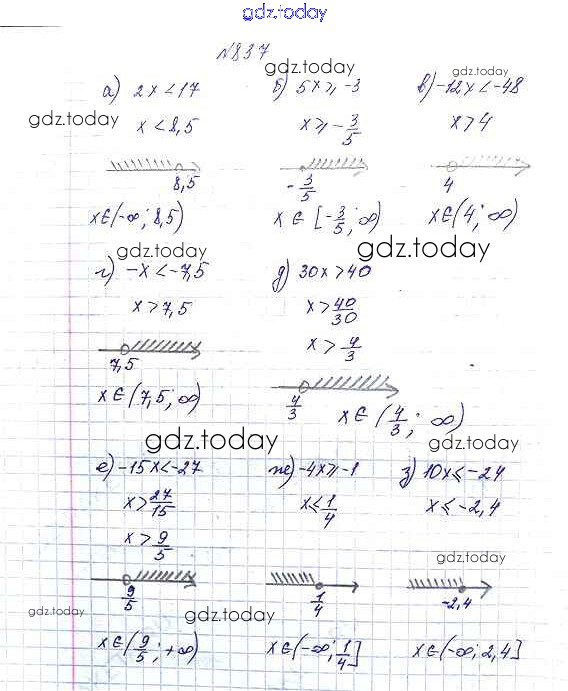 gdz.today
№837
gdz.today
а) 2x<17
x<8,5
8,5
x∈(-∞; 8,5)
б) 5x≥-3
x≥-3/5
-3/5
x∈[-3/5; ∞)
gdz.today
в) -12x<-48
x>4
4
x∈(4; ∞)
gdz.today
gdz.today
г) -x<-7,5
x>7,5
7,5
x∈(7,5; ∞)
gdz.today
д) 30x>40
x>40/30
x>4/3
4/3
x∈(4/3; ∞)
gdz.today
gdz.today
е) -15x<-27
x>27/15
x>9/5
9/5
x∈(9/5; +∞)
ж) -4x≥-1
x≤1/4
1/4
x∈(-∞; 1/4]
з) 10x≤-24
x≤-2,4
-2,4
x∈(-∞; 2,4]
gdz.today
gdz.today
gdz.today